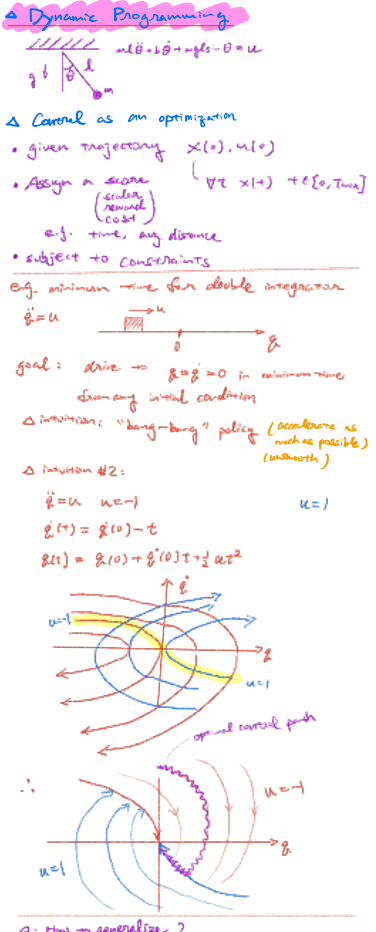 △ Dynamic Programming
mlθ̈ + bθ̇ + mgl sinθ = u
g θ l
m
△ Control as an optimization
• given trajectory x(·), u(·)
∀t x(t) t∈[0, Tmax]
• Assign a score
(scalar
reward
cost)
e.g. time, avg. distance
• subject to constraints
e.g. minimum time for double integrator
q̈ = u
u
0 q
goal: drive to q = q̇ = 0 in minimum time
from any initial condition
△ intuition: "bang-bang" policy (accelerate as
much as possible)
(unsmooth)
△ intuition #2:
q̈ = u u = -1 u = 1
q̇(t) = q̇(0) - t
q(t) = q(0) + q̇(0)t + ½ut²
q̇
u=-1
q
u=1
optimal control path
∴ u=-1
q
u=1
Q: How to generalize ?